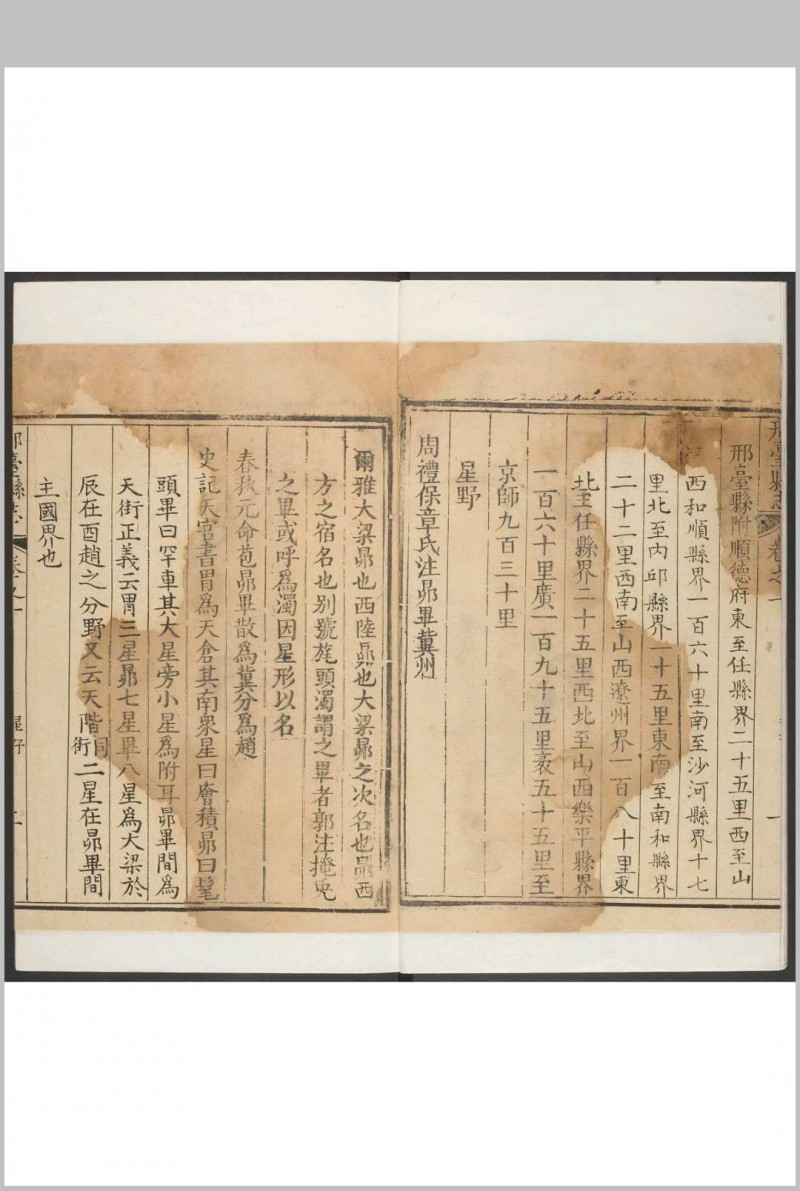 邢臺縣志
卷之一
一
邢臺縣附順德府東至任縣界二十五里西至山
西和順縣界一百六十里南至沙河縣界十七
里北至內邱縣界二十五里東南至南和縣界
二十二里西南至山西遼州界一百八十里東
北至任縣界二十五里西北至山西樂平縣界
一百六十里廣一百九十五里袤五十五里至
京師九百三十里
星野
周禮保章氏注昴畢冀州
爾雅大梁昴也西陸昴也大梁昴之次名也昴西
方之宿名也別號旄頭濁謂之畢者郭注掩兎
之畢或呼為濁因星形以名
春秋元命苞昴畢散為冀分為趙
史記天官書胃為天倉其南眾星曰廥積昴曰髦
頭畢曰罕車其大星旁小星為附耳昴畢間為
天街正義云胃三星昴七星畢八星為大梁於
辰在酉趙之分野又云天階同街二星在昴畢間
主國界也
邢臺縣志
卷之一
星野
二